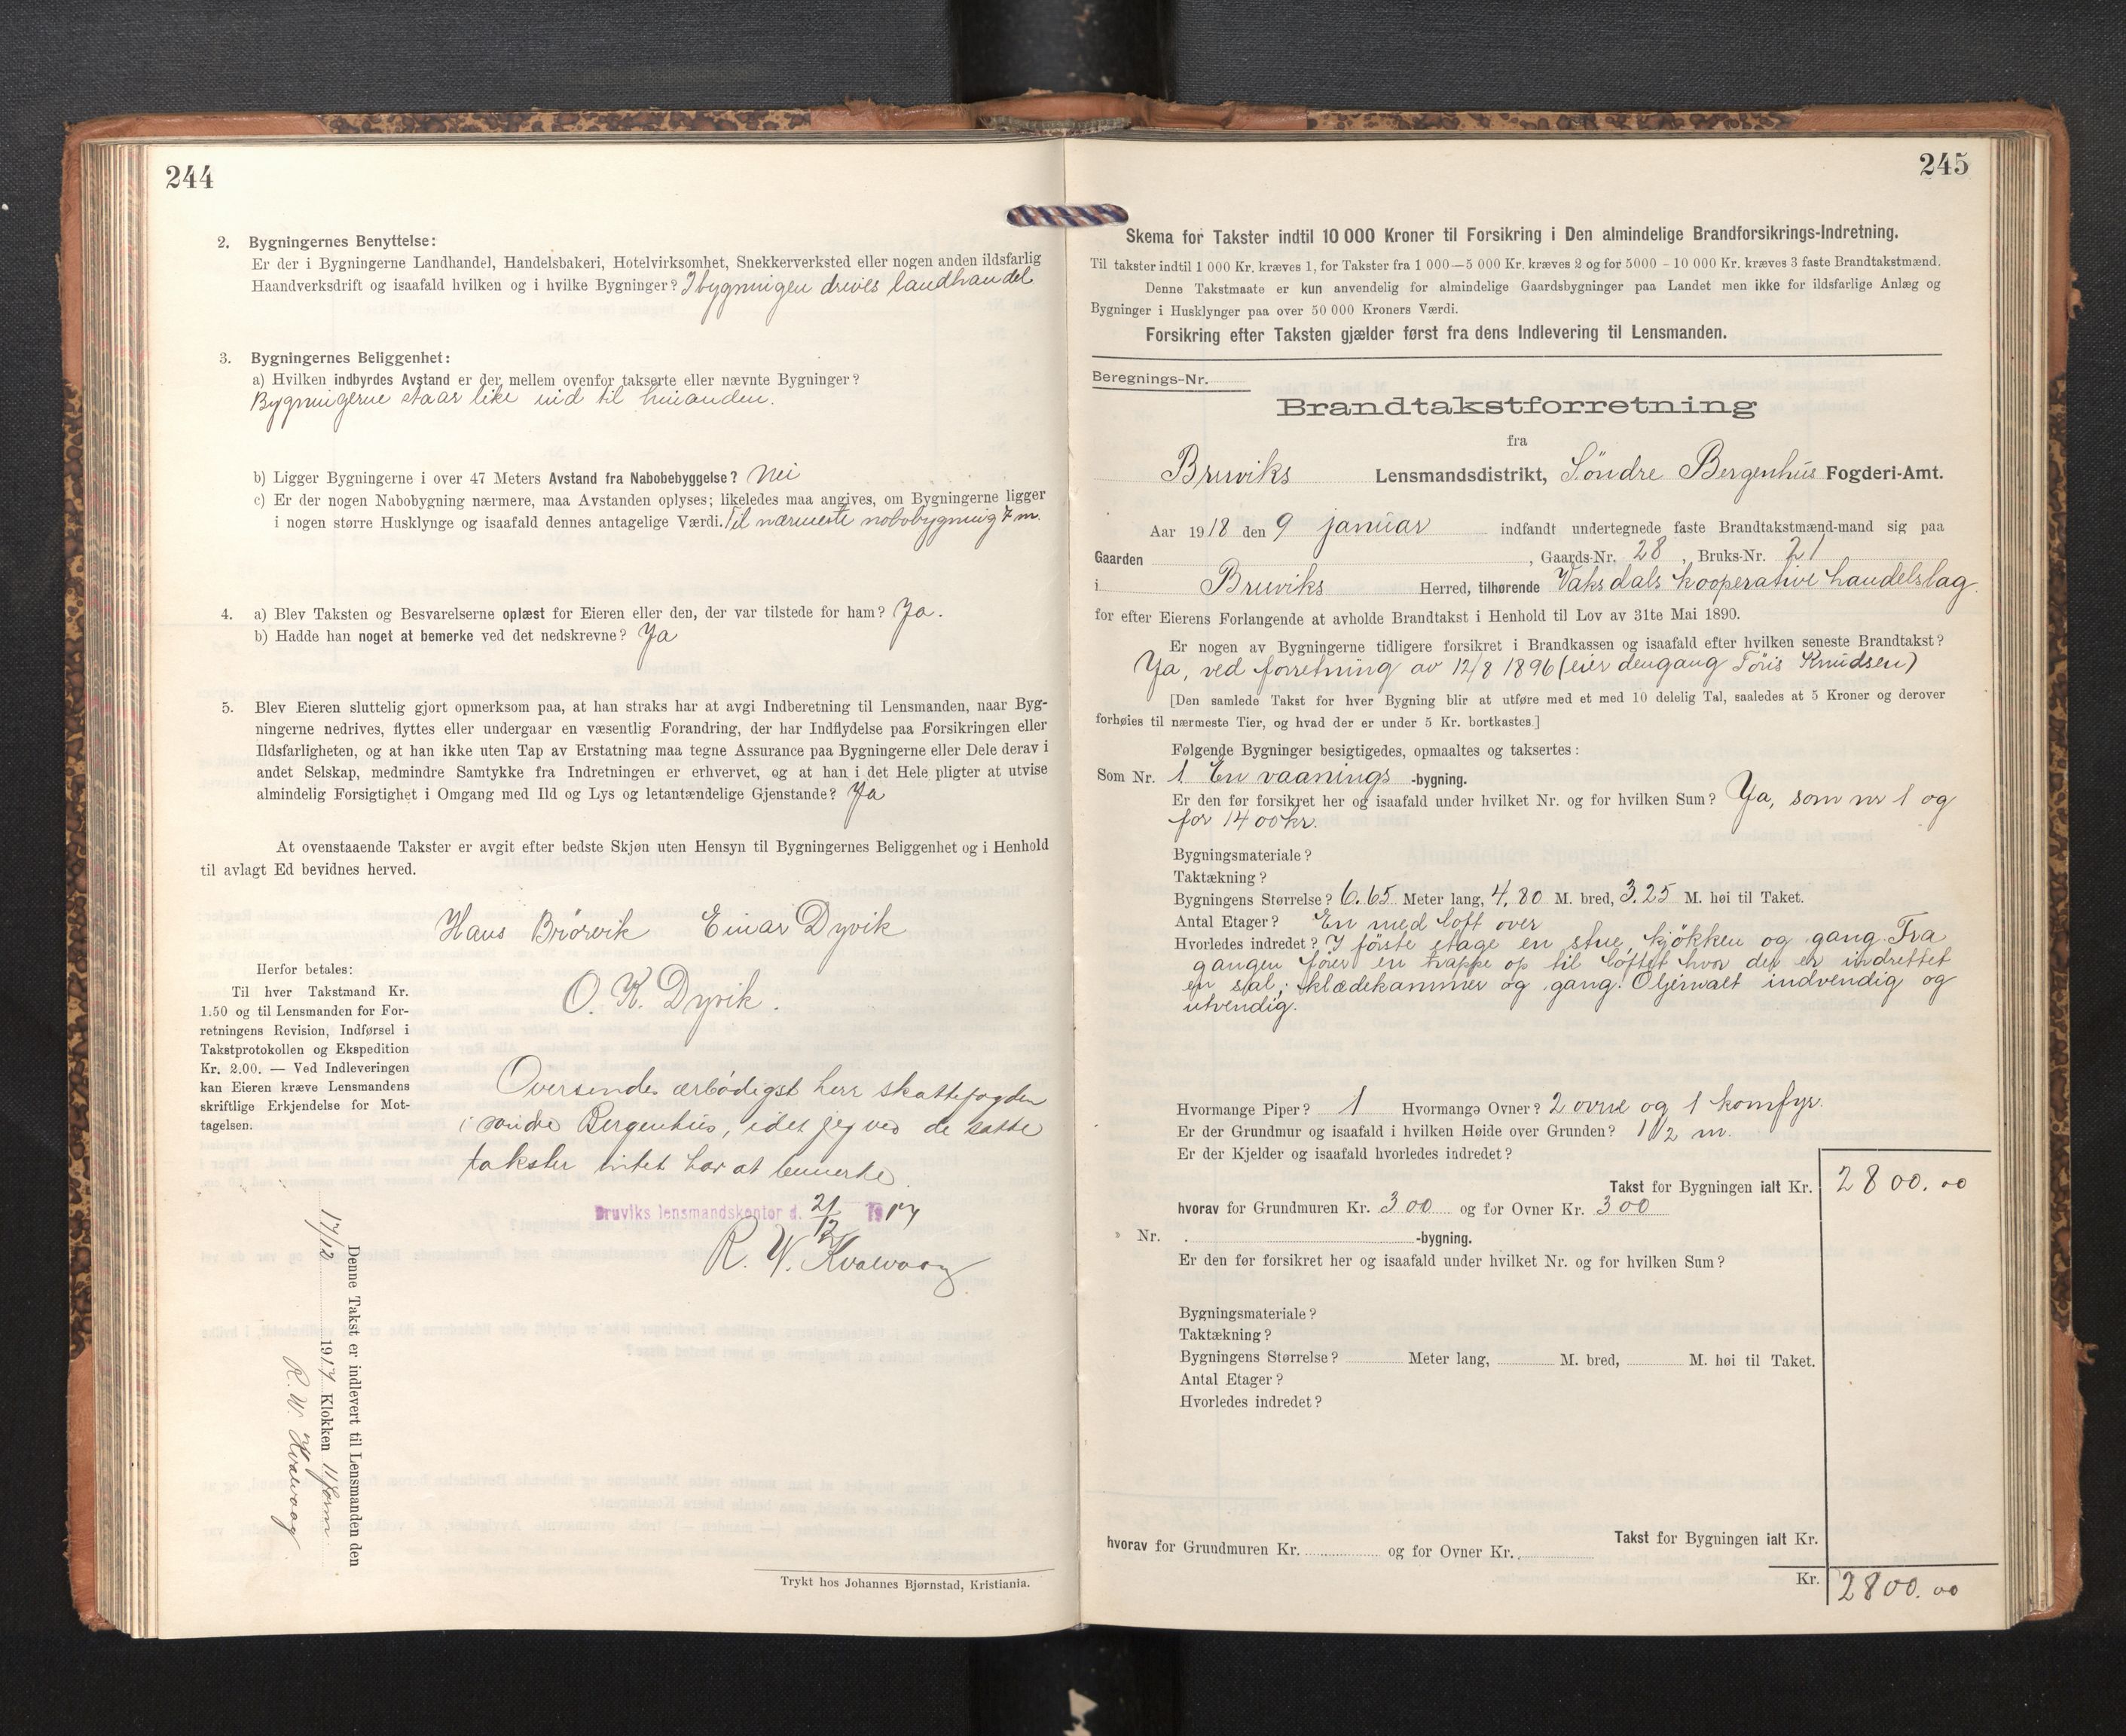 244
2. Bygningernes Benyttelse:
Er der i Bygningerne Landhandel, Handelsbakeri, Hotelvirksomhet, Snekkerverksted eller nogen anden ildsfarlig
Haandverksdrift og isaafald hvilken og i hvilke Bygninger? I bygningen drives landhandel
3. Bygningernes Beliggenhet:
a) Hvilken indbyrdes Avstand er der mellem ovenfor takserte eller nævnte Bygninger?
Bygningerne staar like ind til hinanden.
b) Ligger Bygningerne i over 47 Meters Avstand fra Nabobebyggelse? Nei
c) Er der nogen Nabobygning nærmere, maa Avstanden oplyses; likeledes maa angives, om Bygningerne ligger
i nogen større Husklynge og isaafald dennes antagelige Værdi. Til nærmeste nabobygning 7 m.
4. a) Blev Taksten og Besvarelserne oplæst for Eieren eller den, der var tilstede for ham? Ja.
b) Hadde han noget at bemerke ved det nedskrevne? Ja
5. Blev Eieren sluttelig gjort opmerksom paa, at han straks har at avgi Indberetning til Lensmanden, naar Byg-
ningerne nedrives, flyttes eller undergaar en væsentlig Forandring, der har Indflydelse paa Forsikringen eller
Ildsfarligheten, og at han ikke uten Tap av Erstatning maa tegne Assurance paa Bygningerne eller Dele derav i
andet Selskap, medmindre Samtykke fra Indretningen er erhvervet, og at han i det Hele pligter at utvise
almindelig Forsigtighet i Omgang med Ild og Lys og letantændelige Gjenstande? Ja
At ovenstaaende Takster er avgit efter bedste Skjøn uten Hensyn til Bygningernes Beliggenhet og i Henhold
til avlagt Ed bevidnes herved.
Hans Brørvik Einar Dyvik
O. K. Dyvik.
Herfor betales:
Til hver Takstmand Kr.
1.50 og til Lensmanden for For-
retningens Revision, Indførsel i
Takstprotokollen og Ekspedition
Kr. 2.00. — Ved Indleveringen
kan Eieren kræve Lensmandens
skriftlige Erkjendelse for Mot-
tagelsen.
Oversendes ærbødigst herr skattefogden
i søndre Bergenhus, idet jeg ved de satte
takster intet har at bemerke.
Bruviks lensmandskontor d. 21/12 1917
R. W. Kvalvaag
Denne Takst er indlevert til Lensmanden den
17/12 1917 Klokken 11 form
R. W. Kvalvaag
Trykt hos Johannes Bjørnstad, Kristiania.
245
Skema for Takster indtil 10 000 Kroner til Forsikring i Den almindelige Brandforsikrings-Indretning.
Til takster indtil 1 000 Kr. kræves 1, for Takster fra 1 000—5 000 Kr. kræves 2 og for 5000 - 10 000 Kr. kræves 3 faste Brandtakstmænd.
Denne Takstmaate er kun anvendelig for almindelige Gaardsbygninger paa Landet men ikke for ildsfarlige Anlæg og
Bygninger i Husklynger paa over 50 000 Kroners Værdi.
Forsikring efter Taksten gjælder først fra dens Indlevering til Lensmanden.
Beregnings-Nr.
Brandtakstforretning
fra
Bruviks Lensmandsdistrikt, Söndre Bergenhus Fogderi-Amt.
Aar 1918 den 9 januar indfandt undertegnede faste Brandtakstmænd-mand sig paa
Gaarden , Gaards-Nr. 28 , Bruks-Nr. 21
i Bruviks Herred, tilhørende Vaksdals kooperative handelslag
for efter Eierens Forlangende at avholde Brandtakst i Henhold til Lov av 31te Mai 1890.
Er nogen av Bygningerne tidligere forsikret i Brandkassen og isaafald efter hvilken seneste Brandtakst?
Ja, ved forretning av 12/8 1896 (eier dengang Töris Knudsen)
[Den samlede Takst for hver Bygning blir at utføre med et med 10 delelig Tal, saaledes at 5 Kroner og derover
forhøies til nærmeste Tier, og hvad der er under 5 Kr. bortkastes.]
Følgende Bygninger besigtigedes, opmaaltes og taksertes:
Som Nr. 1 En vaanings -bygning.
Er den før forsikret her og isaafald under hvilket Nr. og for hvilken Sum? Ja, som nr 1 og
for 1400 kr.
Bygningsmateriale?
Taktækning?
Bygningens Størrelse? 6.65 Meter lang, 4,80 M. bred, 3.25 M. høi til Taket.
Antal Etager? En med loft over
Hvorledes indredet? I förste etage en stue, kjökken og gang. Fra
gangen förer en trappe op til loftet hvor der er indrettet
en sal, klædekammer og gang. Oljemalt indvendig og
utvendig.
Hvormange Piper? 1 Hvormange Ovner? 2 ovne og 1 komfyr.
Er der Grundmur og isaafald i hvilken Høide over Grunden? 1 1/2 m.
Er der Kjelder og isaafald hvorledes indredet?
Takst for Bygningen ialt Kr. 2800.00
hvorav for Grundmuren Kr. 300 og for Ovner Kr. 300
Nr. -bygning.
Er den før forsikret her og isaafald under hvilket Nr. og for hvilken Sum?
Bygningsmateriale?
Taktækning?
Bygningens Størrelse? Meter lang, M. bred, M. høi til Taket.
Antal Etager?
Hvorledes indredet?
Takst for Bygningen ialt Kr.
hvorav for Grundmuren Kr. og for Ovner Kr.
Kr. 2800.00